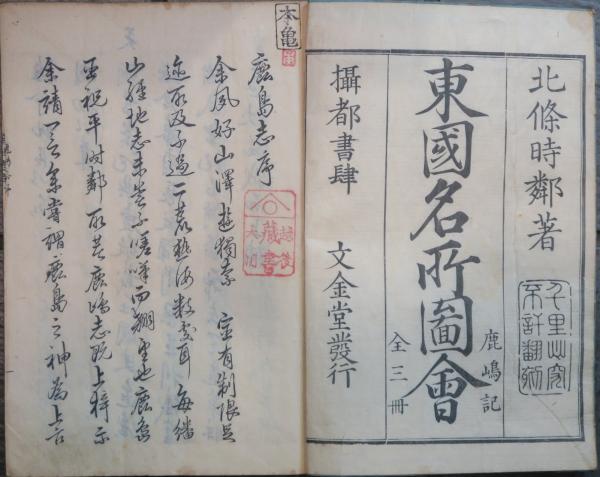 北條時鄰著
東國名所圖會
鹿嶋記
全三冊
攝都書肆
文金堂發行
千里必究
不許翻刻
本亀
鹿島志序
余夙好山澤遊獨奈 官有制限足
迹所及不過二荒
山經地志未嘗不嗟咩而翹望也鹿島
祝平時鄰所著鹿嶋志既上梓示
余請一言余嘗謂鹿島之神為上古
藏書